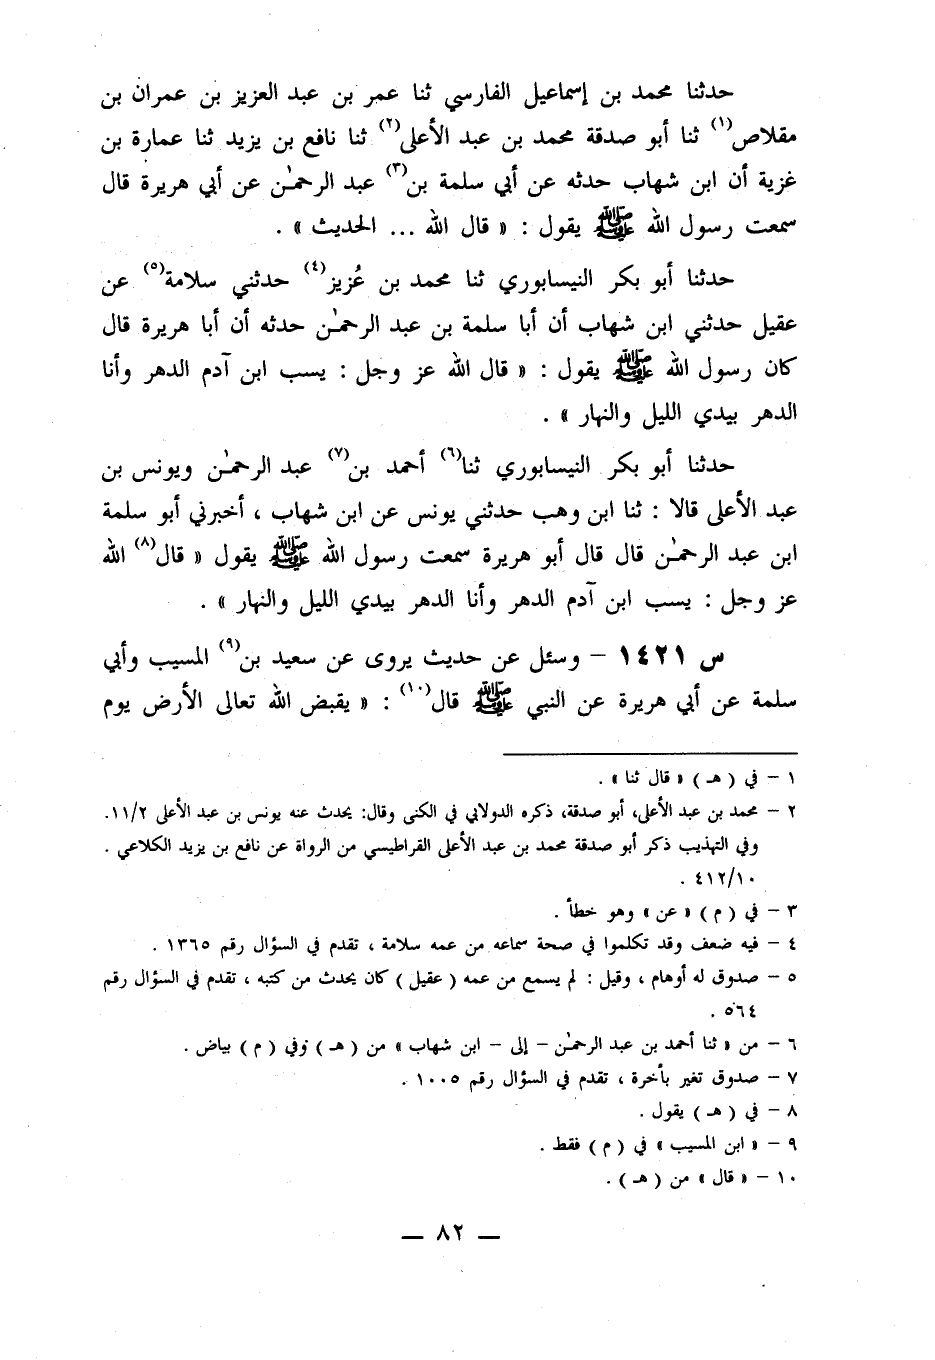 حدثنا محمد بن إسماعيل الفارسي ثنا عمر بن عبد العزيز بن عمران بن
مقلاص(١) ثنا أبو صدقة محمد بن عبد الأعلى(٢) ثنا نافع بن يزيد ثنا عمارة بن
غزية أن ابن شهاب حدثه عن أبي سلمة بن(٣) عبد الرحمٰن عن أبي هريرة قال
سمعت رسول الله ﷺ يقول : « قال الله ... الحديث » .
حدثنا أبو بكر النيسابوري ثنا محمد بن عُزيز(٤) حدثني سلامة(٥) عن
عقيل حدثني ابن شهاب أن أبا سلمة بن عبد الرحمٰن حدثه أن أبا هريرة قال
كان رسول الله ﷺ يقول : « قال الله عز وجل : يسب ابن آدم الدهر وأنا
الدهر بيدي الليل والنهار » .
حدثنا أبو بكر النيسابوري ثنا(٦) أحمد بن(٧) عبد الرحمٰن ويونس بن
عبد الأعلى قالا : ثنا ابن وهب حدثني يونس عن ابن شهاب ، أخبرني أبو سلمة
ابن عبد الرحمٰن قال قال أبو هريرة سمعت رسول الله ﷺ يقول « قال(٨) الله
عز وجل : يسب ابن آدم الدهر وأنا الدهر بيدي الليل والنهار » .
س ١٤٢١ – وسئل عن حديث يروى عن سعيد بن(٩) المسيب وأبي
سلمة عن أبي هريرة عن النبي ﷺ قال(١٠) : « يقبض الله تعالى الأرض يوم
١ – في ( هـ ) « قال ثنا » .
٢ – محمد بن عبد الأعلى، أبو صدقة، ذكره الدولابي في الكنى وقال: يحدث عنه يونس بن عبد الأعلى ١١/٢.
وفي التهذيب ذكر أبو صدقة محمد بن عبد الأعلى القراطيسي من الرواة عن نافع بن يزيد الكلاعي .
٤١٢/١٠ .
٣ – في ( م ) « عن » وهو خطأ .
٤ – فيه ضعف وقد تكلموا في صحة سماعه من عمه سلامة ، تقدم في السؤال رقم ١٣٦٥ .
٥ – صدوق له أوهام ، وقيل : لم يسمع من عمه ( عقيل ) كان يحدث من كتبه ، تقدم في السؤال رقم
٥٦٤ .
٦ – من « ثنا أحمد بن عبد الرحمٰن – إلى – ابن شهاب » من ( هـ ) وفي ( م ) بياض .
٧ – صدوق تغير بأخرة ، تقدم في السؤال رقم ١٠٠٥ .
٨ – في ( هـ ) يقول .
٩ – « ابن المسيب » في ( م ) فقط .
١٠ – « قال » من ( هـ ) .
— ٨٢ —